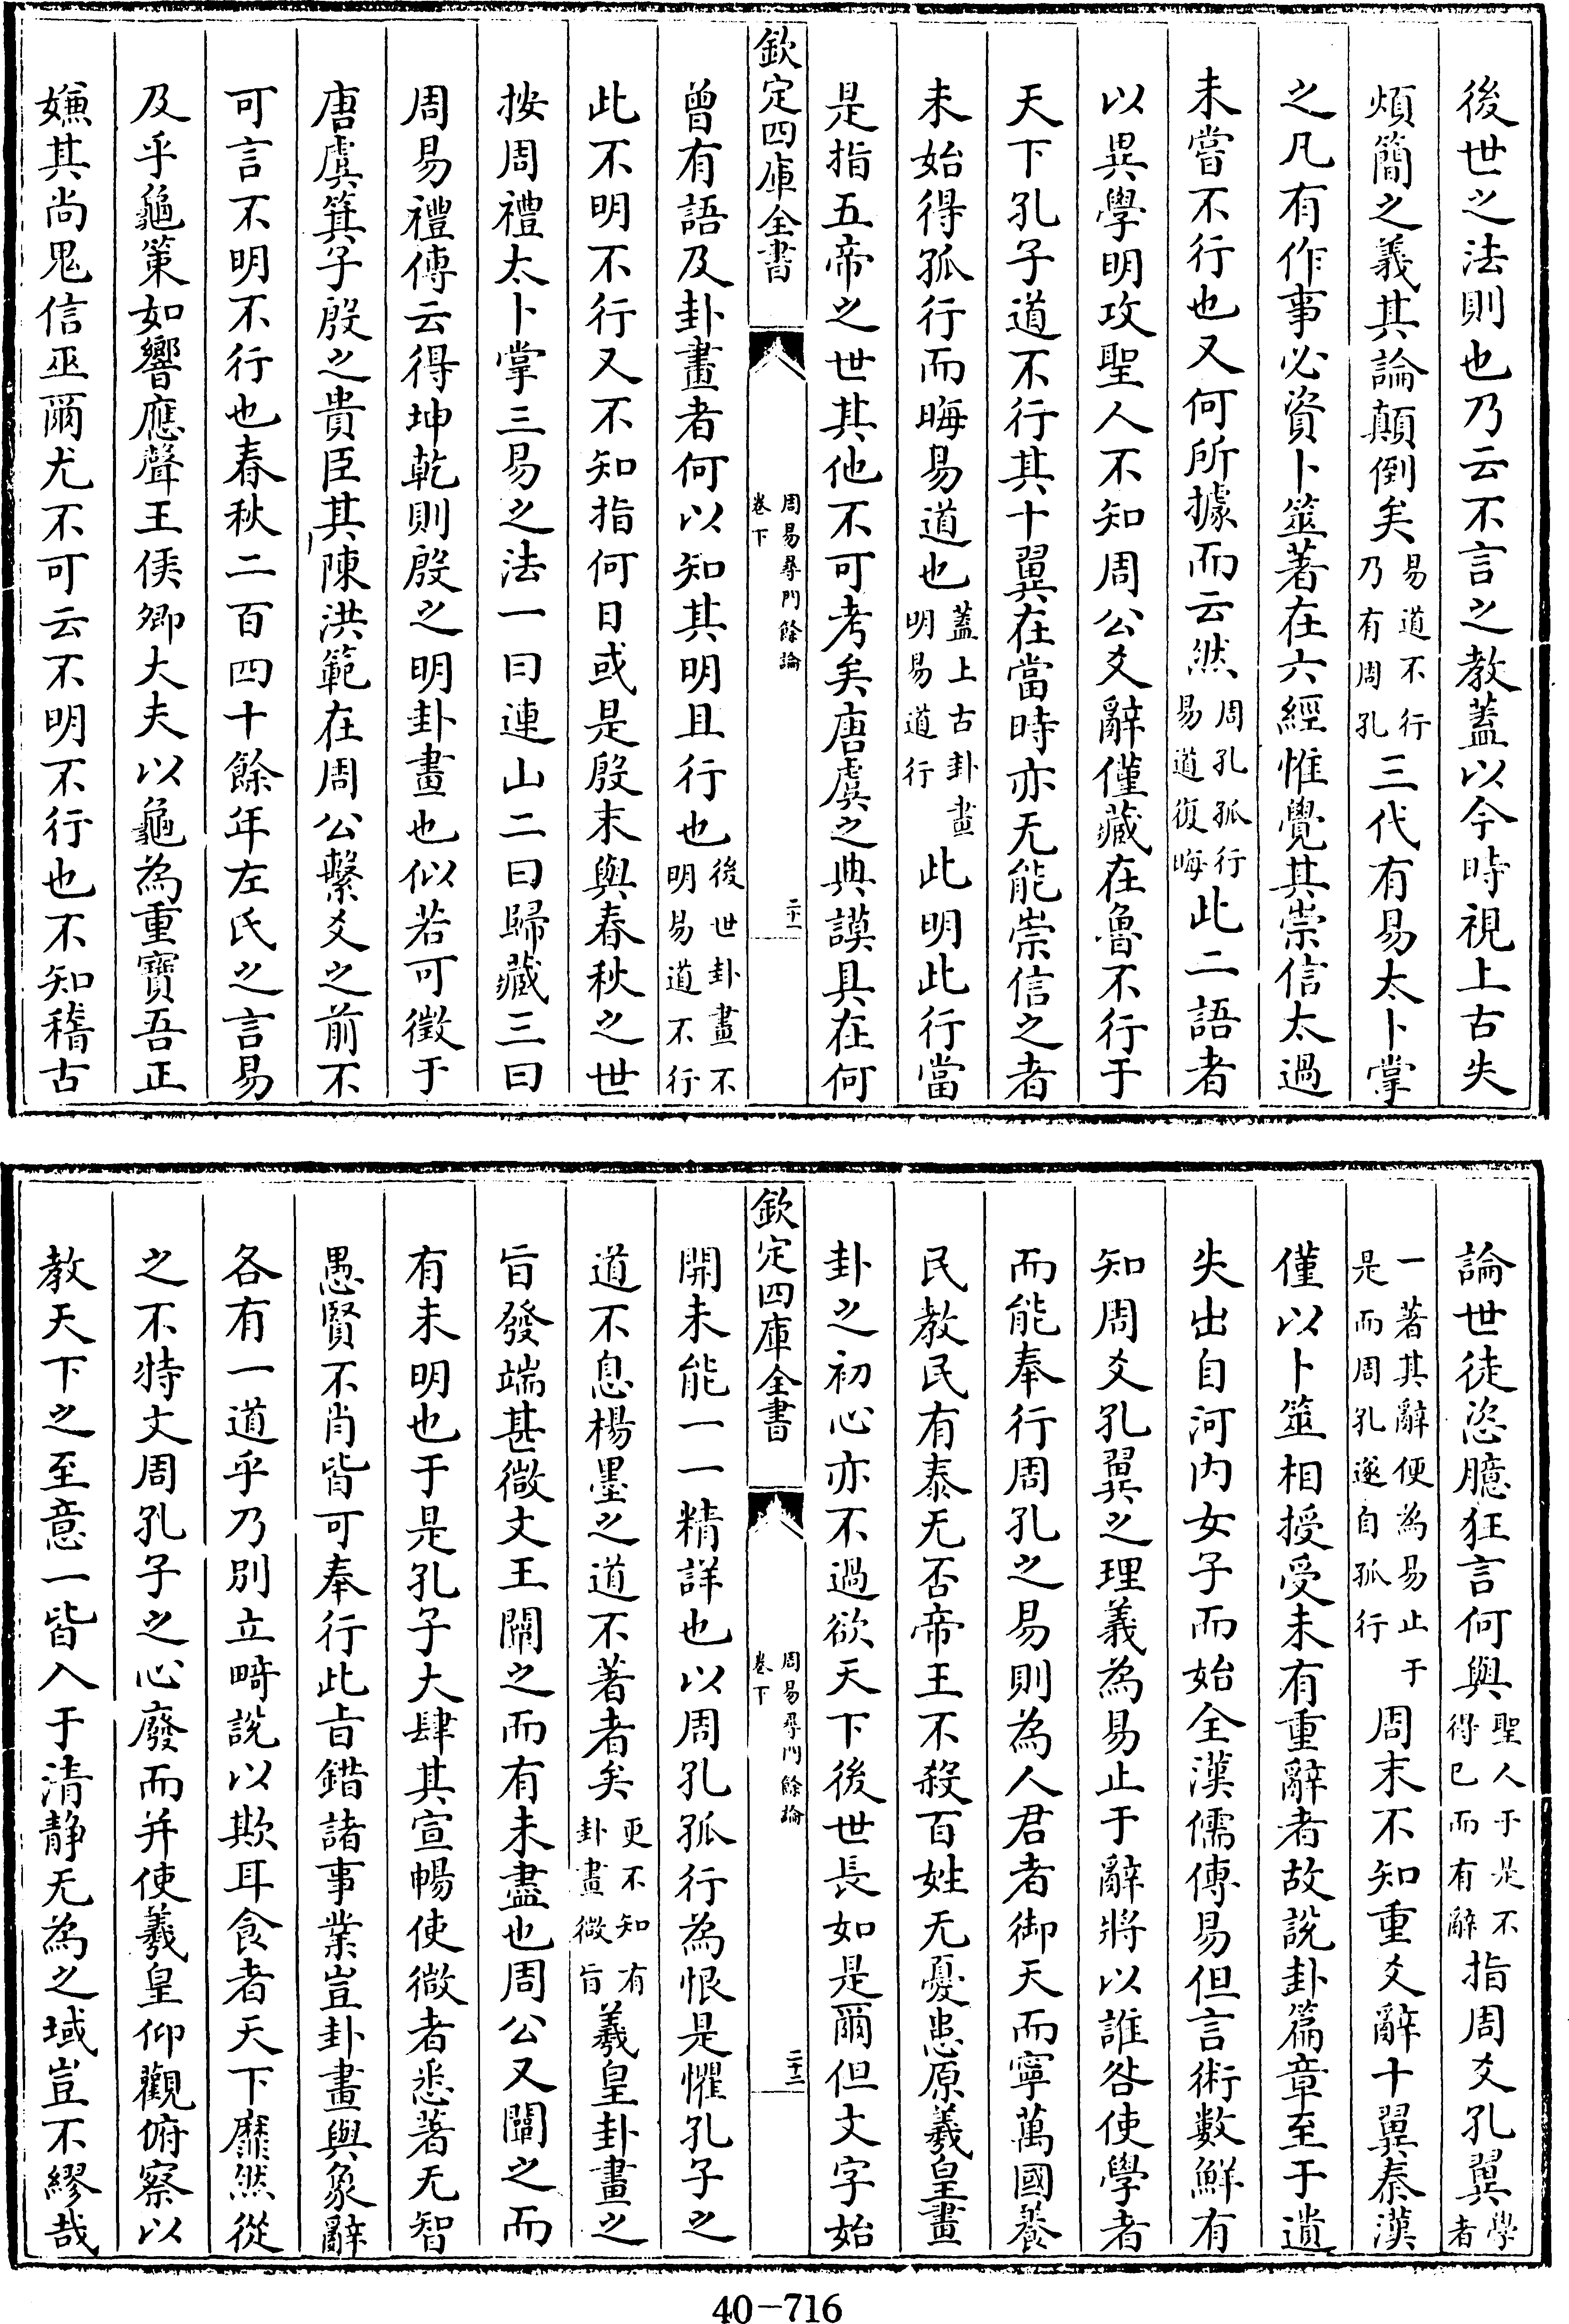 後世之法則也乃云不言之教蓋以今時視上古失
煩簡之義其論顛倒矣易道不行乃有周孔三代有易太卜掌
之凡有作事必資卜筮著在六經惟覺其崇信太過
未嘗不行也又何所據而云然周孔孤行易道復晦此二語者
以異學明攻聖人不知周公爻辭僅藏在魯不行于
天下孔子道不行其十翼在當時亦无能崇信之者
未始得孤行而晦易道也蓋上古卦畫明易道行此明此行當
是指五帝之世其他不可考矣唐虞之典謨具在何
欽定四庫全書 周易尋門餘論卷下 二十一
曾有語及卦畫者何以知其明且行也後世卦畫不明易道不行
此不明不行又不知指何日或是殷末與春秋之世
按周禮太卜掌三易之法一曰連山二曰歸藏三曰
周易禮傳云得坤乾則殷之明卦畫也似若可徵于
唐虞箕子殷之貴臣其陳洪範在周公繫爻之前不
可言不明不行也春秋二百四十餘年左氏之言易
及乎龜策如響應聲王侯卿大夫以龜為重寶吾正
嫌其尚鬼信巫爾尤不可云不明不行也不知稽古
論世徒恣臆狂言何與聖人于是不得已而有辭指周爻孔翼學者
一著其辭便為易止于是而周孔遂自孤行周末不知重爻辭十翼秦漢
僅以卜筮相授受未有重辭者故說卦篇章至于遺
失出自河内女子而始全漢儒傳易但言術數鮮有
知周爻孔翼之理義為易止于辭將以誰咎使學者
而能奉行周孔之易則為人君者御天而寧萬國養
民教民有泰无否帝王不殺百姓无憂患原羲皇畫
卦之初心亦不過欲天下後世長如是爾但文字始
欽定四庫全書 周易尋門餘論卷下 二十二
開未能一一精詳也以周孔孤行為恨是懼孔子之
道不息楊墨之道不著者矣更不知有卦畫微旨羲皇卦畫之
旨發端甚微文王闡之而有未盡也周公又闡之而
有未明也于是孔子大肆其宣暢使微者悉著无智
愚賢不肖皆可奉行此旨錯諸事業豈卦畫與彖辭
各有一道乎乃別立畸說以欺耳食者天下靡然從
之不特文周孔子之心廢而并使羲皇仰觀俯察以
教天下之至意一皆入于清靜无為之域豈不繆哉
40-716